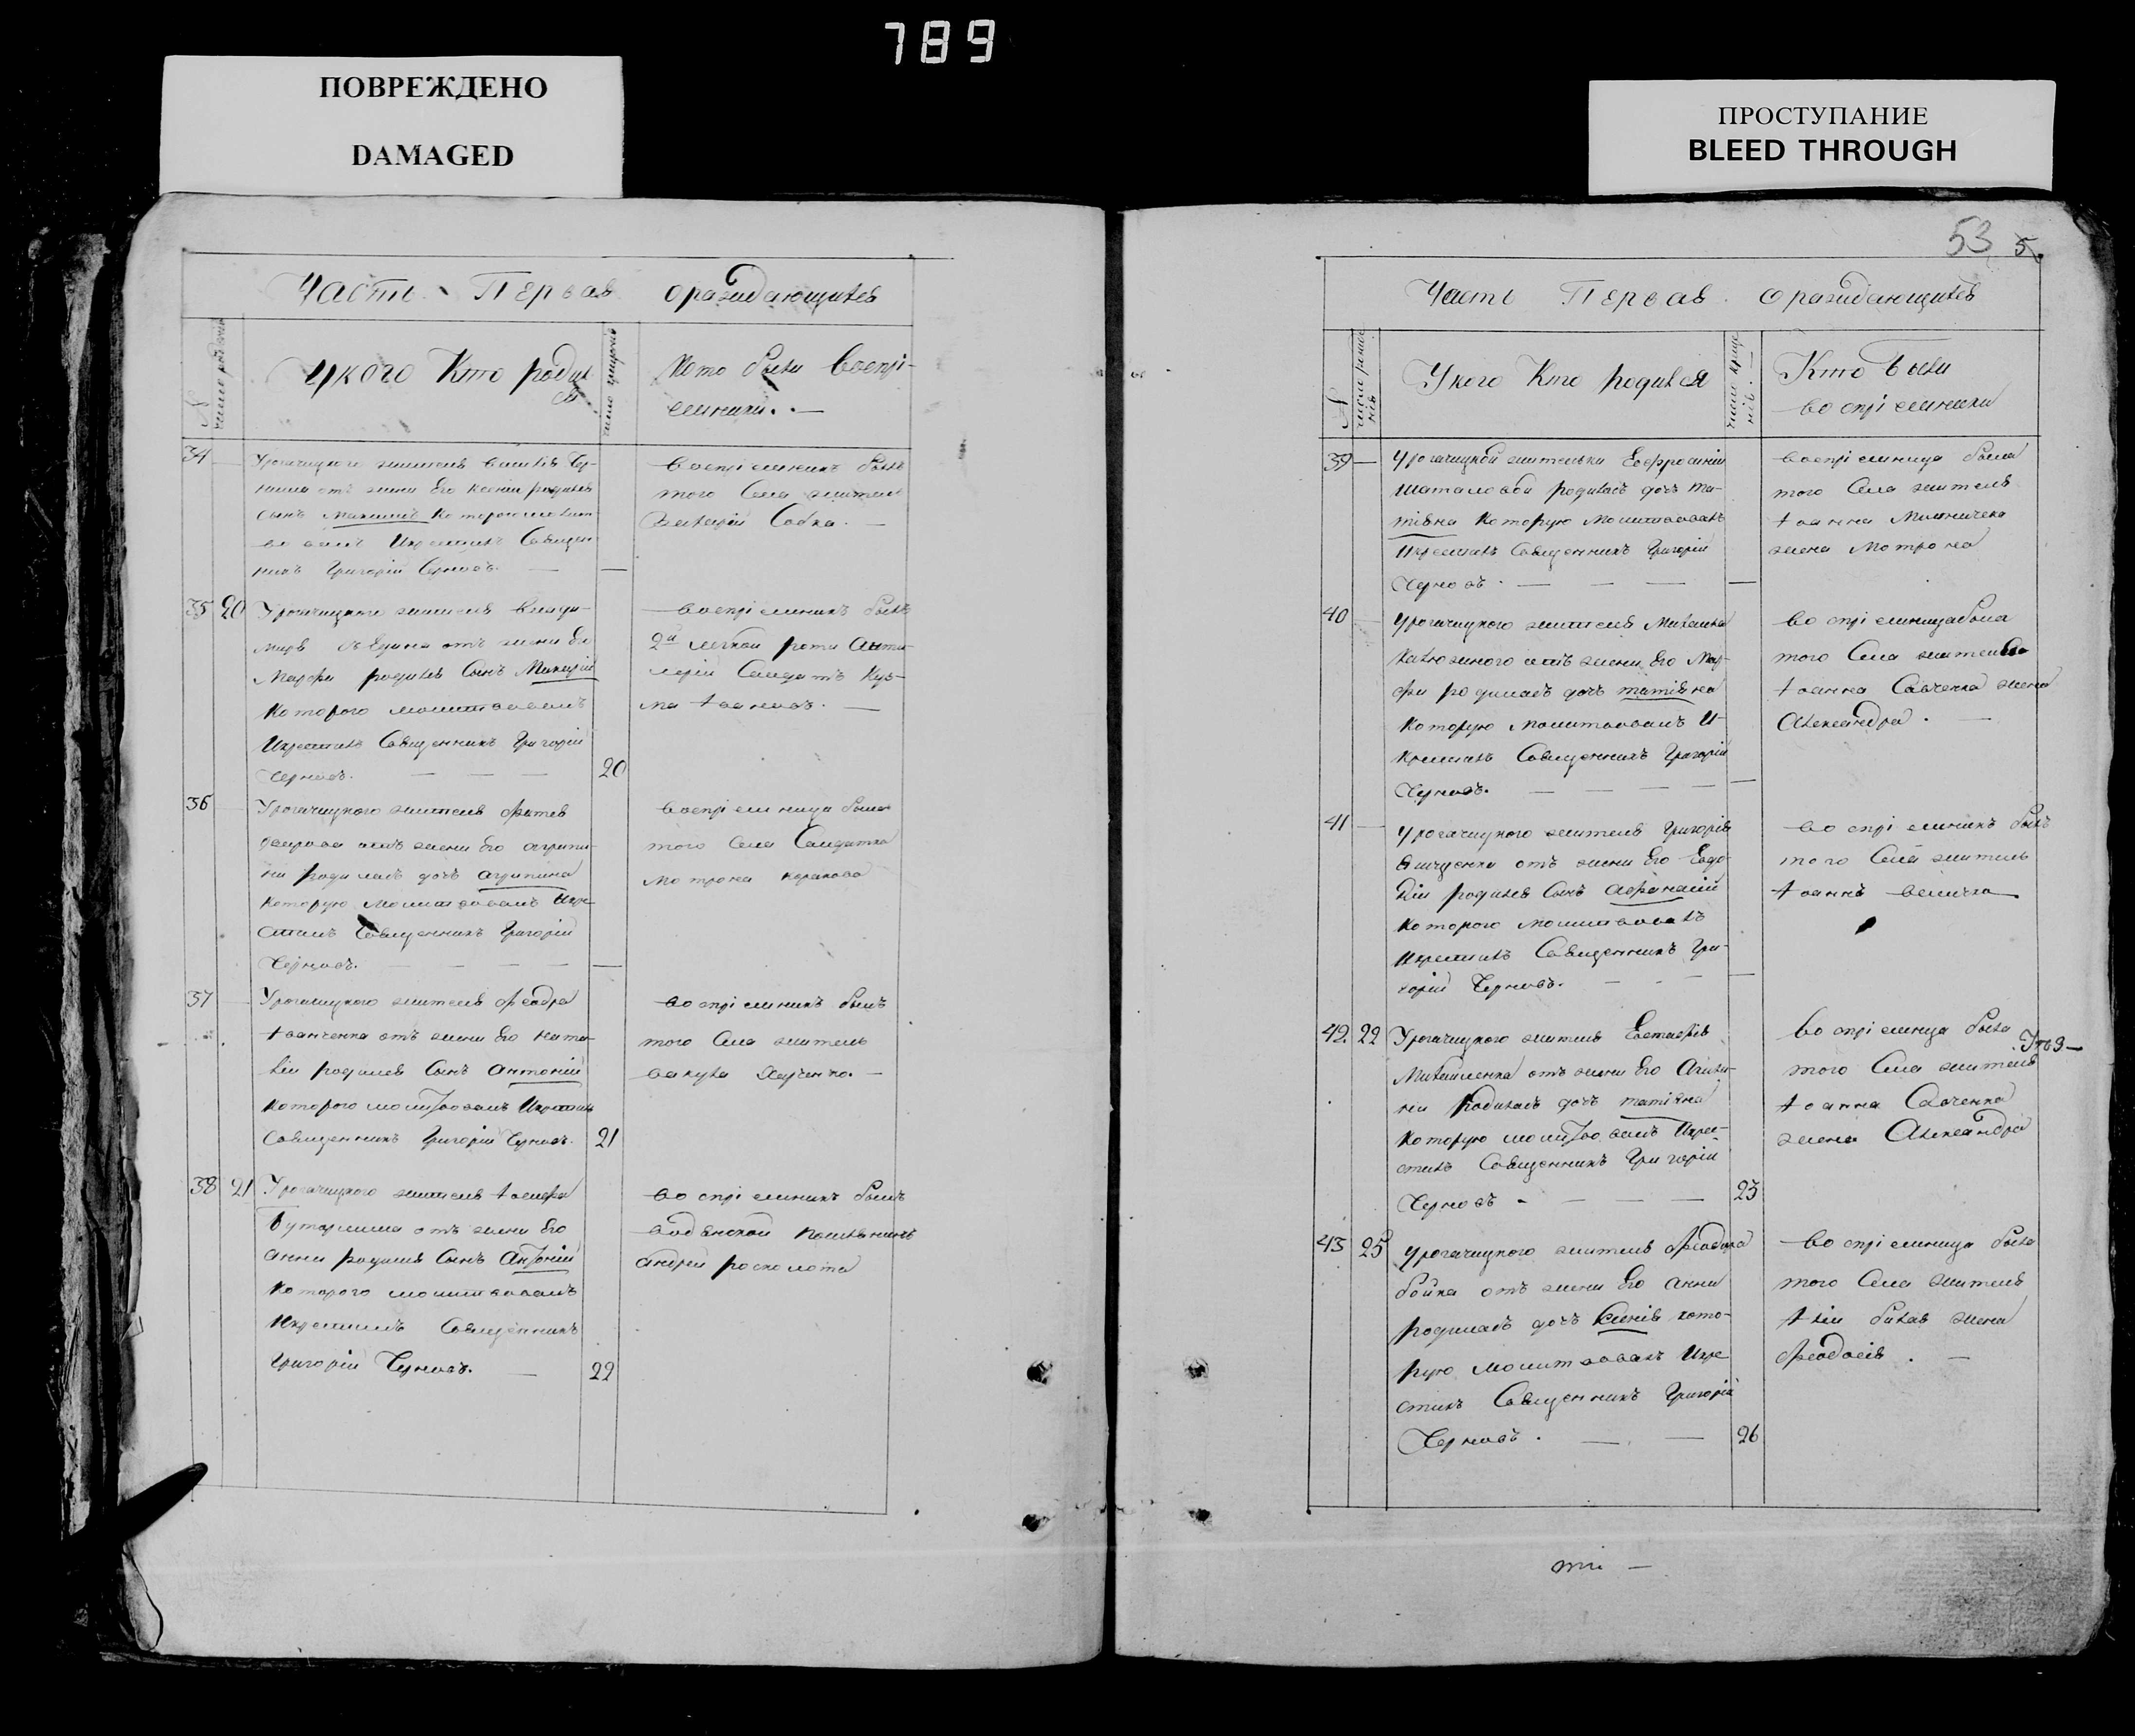 789
ПОВРЕЖДЕНО
DAMAGED
ПРОСТУПАНИЕ
BLEED THROUGH
Часть Первая
число рожденія
У кого Кто родил
ся
Кто были воспрі-
емники.
34
Урогачицкого жителя
от жени Его Ксении родился
сынъ Максимъ Которого молитво-
во валъ Икрестилъ Священ-
никъ Григорій Черновъ.
воспріемникъ былъ
того Села житель
Собка.
35 20
Урогачицкого жителя Влади-
мира отъ жени Его
Марфи родился Сынъ Макарій
Которого молитвовалъ
Икрестилъ Священникъ Григорій
Черновъ.
20
воспріемникъ былъ
2й легкой роти Арти-
лерій Салдатъ Куз-
ма Іоановъ.
36
Урогачицкого жителя Фотея
отъ жени Его агрипи-
ни родилась дочъ агрипина
Которую Молитвовалъ Икре-
стилъ Священникъ Григорій
Черновъ.
воспріемница была
того Села Салдатка
Мотрона
37
Урогачицкого жителя Феодра
Іванченка отъ жени Его ната-
ліи родился Сынъ антоній
Которого молитвовалъ Икрестилъ
Священникъ Григорій Черновъ.
21
воспріемникъ былъ
того Села житель
вакула Харченко.
38 21
Урогачицкого жителя Іосифа
отъ жени Его
анни родился Сынъ Антоній
Которого молитвовалъ
Икрестилъ Священникъ
Григорій Черновъ.
22
воспріемникъ былъ
андрей росколота
53
Часть Первая
У кого Кто родился
Кто были
воспріемники
39
Урогачицкой жителки Евфросиніи
Шаталовой родилась дочъ та-
тіяна Которую Молитвовалъ
Икрестилъ Священникъ Григорій
Черновъ.
воспріемница была
того Села жителя
Іоанна
жена Мотрона
40
Урогачицкого жителя Михаила
отъ жени Его Мар-
фи родилась дочъ татіяна
Которую Молитвовалъ И-
крестилъ Священникъ Григорій
Черновъ.
воспріемница была
того Села жителя
Іоанна Савченка жена
Александра.
41
Урогачицкого жителя Григорія
отъ жени Его Евдо-
кіи родился Сынъ Афанасій
Которого молитвовалъ
Икрестилъ Священникъ Гри-
горій Черновъ.
воспріемникъ былъ
того Села житель
Іоаннъ величко
42. 22
Урогачицкого жителя Евстафія
Михайленка отъ жени Его
родилась дочъ татіяна
Которую молитвовалъ Икре-
стилъ Священникъ Григорій
Черновъ
23
воспріемница была
того Села жителя
Іоанна Савченка
жена Александра
43 25
Урогачицкого жителя Феодора
бойка отъ жени Его анни
родилась дочъ Ксенія кото-
рую Молитвовалъ Икре
стилъ Священникъ Григорій
Черновъ.
26
воспріемница была
того Села жителя
жена
Феодосія.